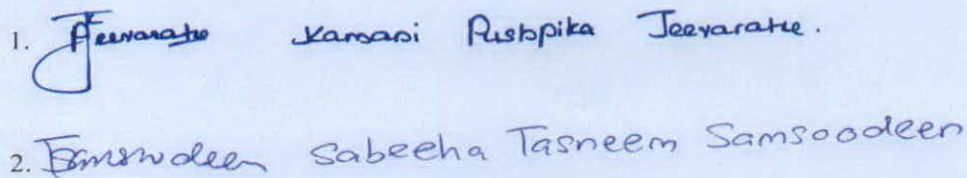 1. Jeevarathe Kamsani Pushpika Jeevarathe.
2. Samsudeen Sabeeha Tasneem Samsoodeen